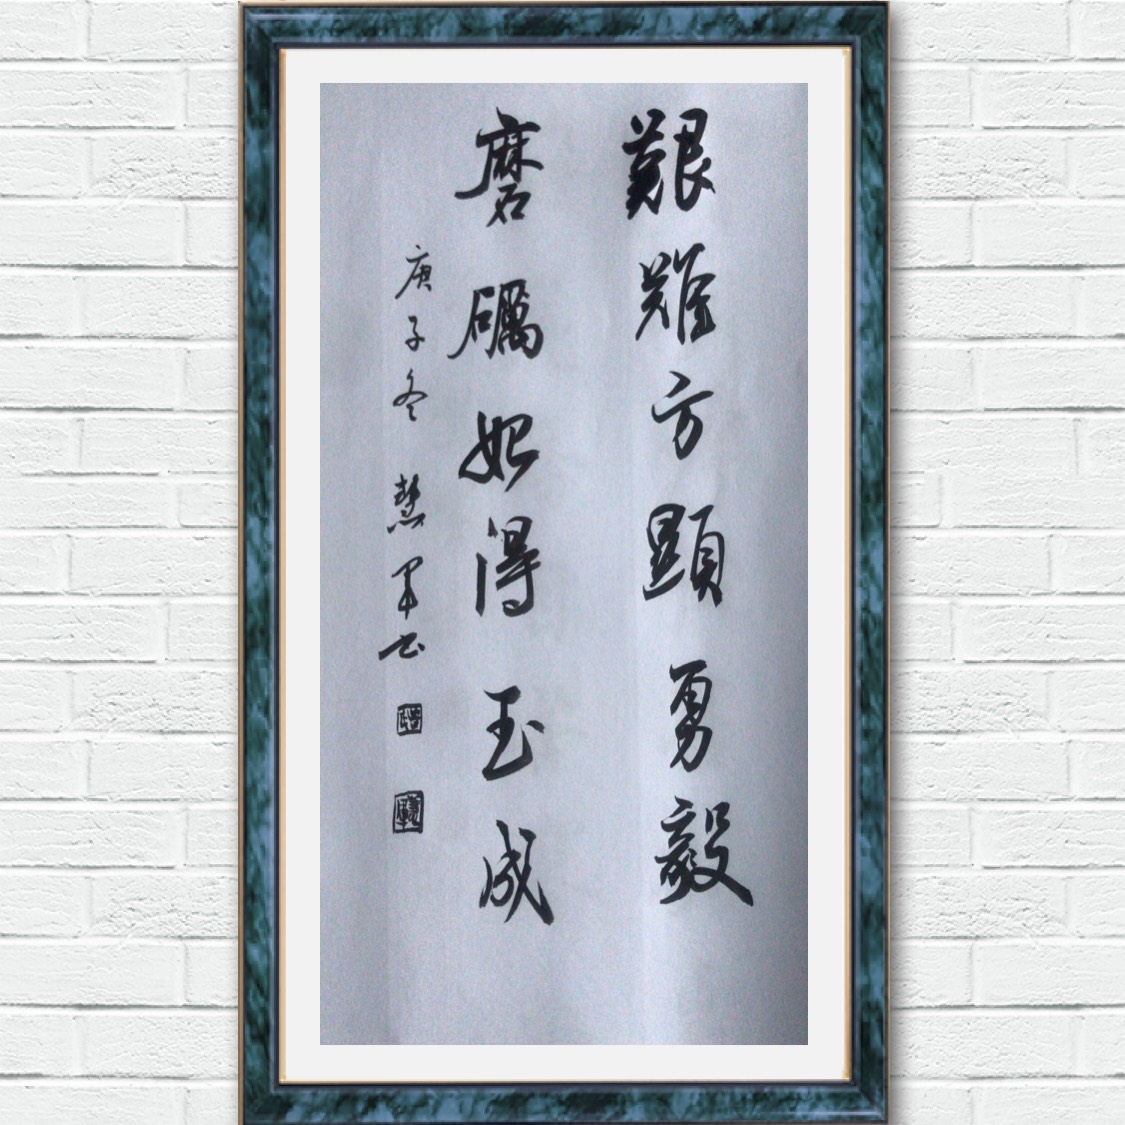 艱難方顯勇毅
磨礪始得玉成
庚子冬 慧軍书